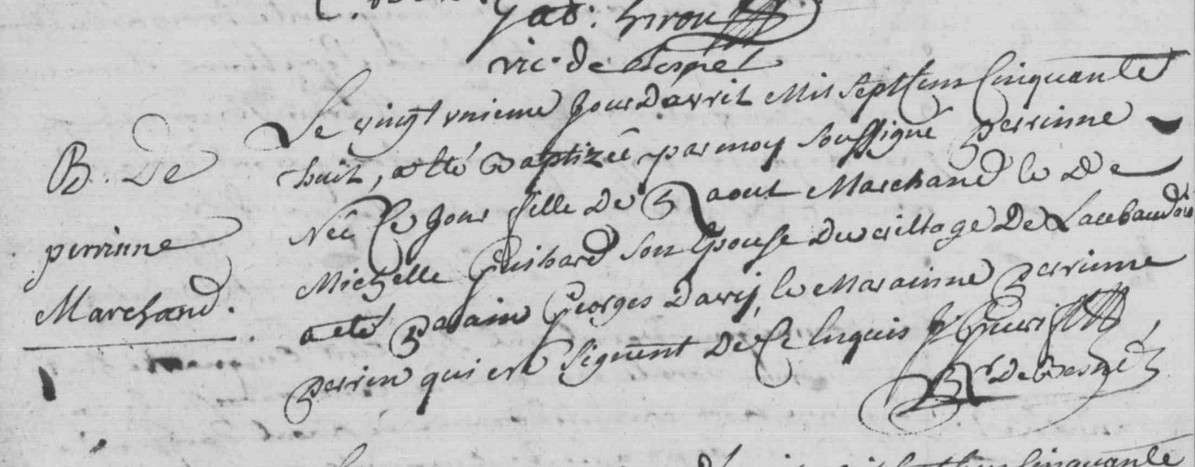 vic. de
B. De
perrinne
Marchand.
Le vingt unieme Jour Davril Mil Sept Cens Cinquante
huit, a eté Baptizeé par moy Soussigné perrinne
Neé Ce Jour fille De Raout Marchand & De
Michelle Guihard Son Epouse Du village De
a eté parain Georges Davy, & Marainne perrinne
perrin qui ne Signent De Ce Enquis